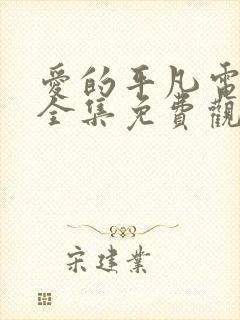 愛的平凡電
全集免費觀
宋建業